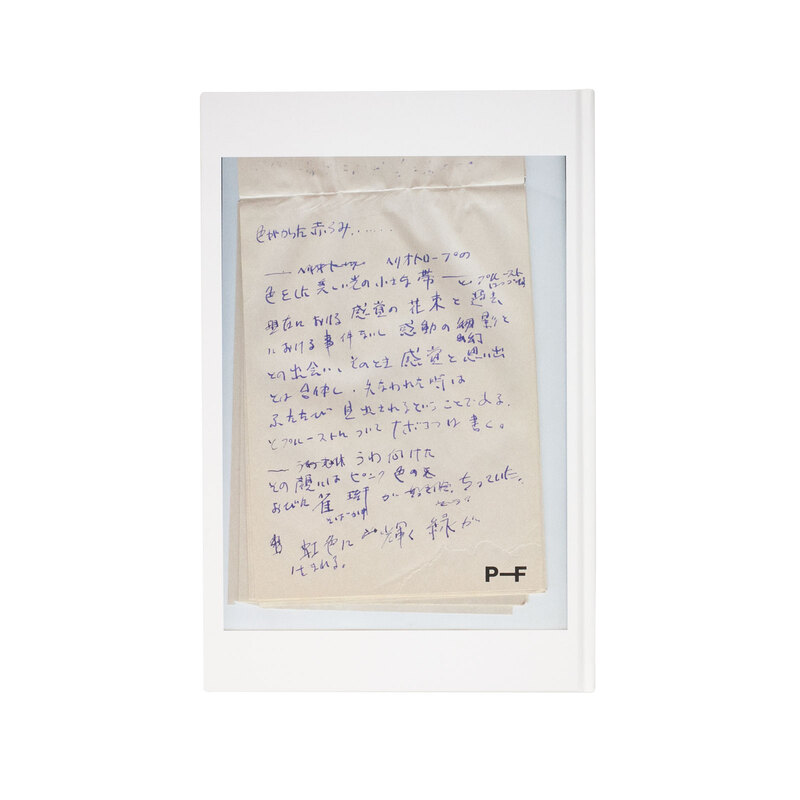 色がかった赤らみ……
— ヘリオトロープの
色をした美しい光の小さな帯 — とプルースト
現在における感覚の花束と過去
における事件ないし感動の幻影と
の出会い、そのとき感覚と思い出
とは合体し、失なわれた時は
ふたたび見出されるということである。
とプルーストについてナボコフは書く。
— うわ向けた
その顔にはピンク色の
おびた雀斑が 散っていた。
そばかす
虹色に輝く緑が
生まれる。
P—F